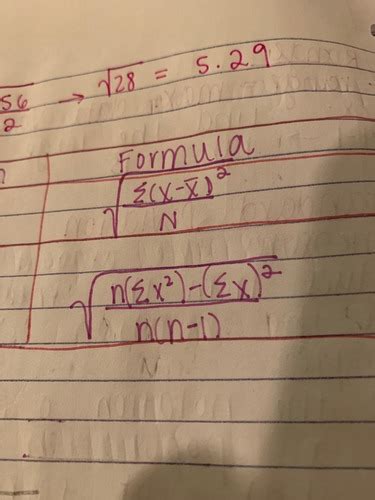 56
2 → √28 = 5.29
Formula
√Σ(x-x̄)²
N
√n(Σx²)-(Σx)²
n(n-1)
N